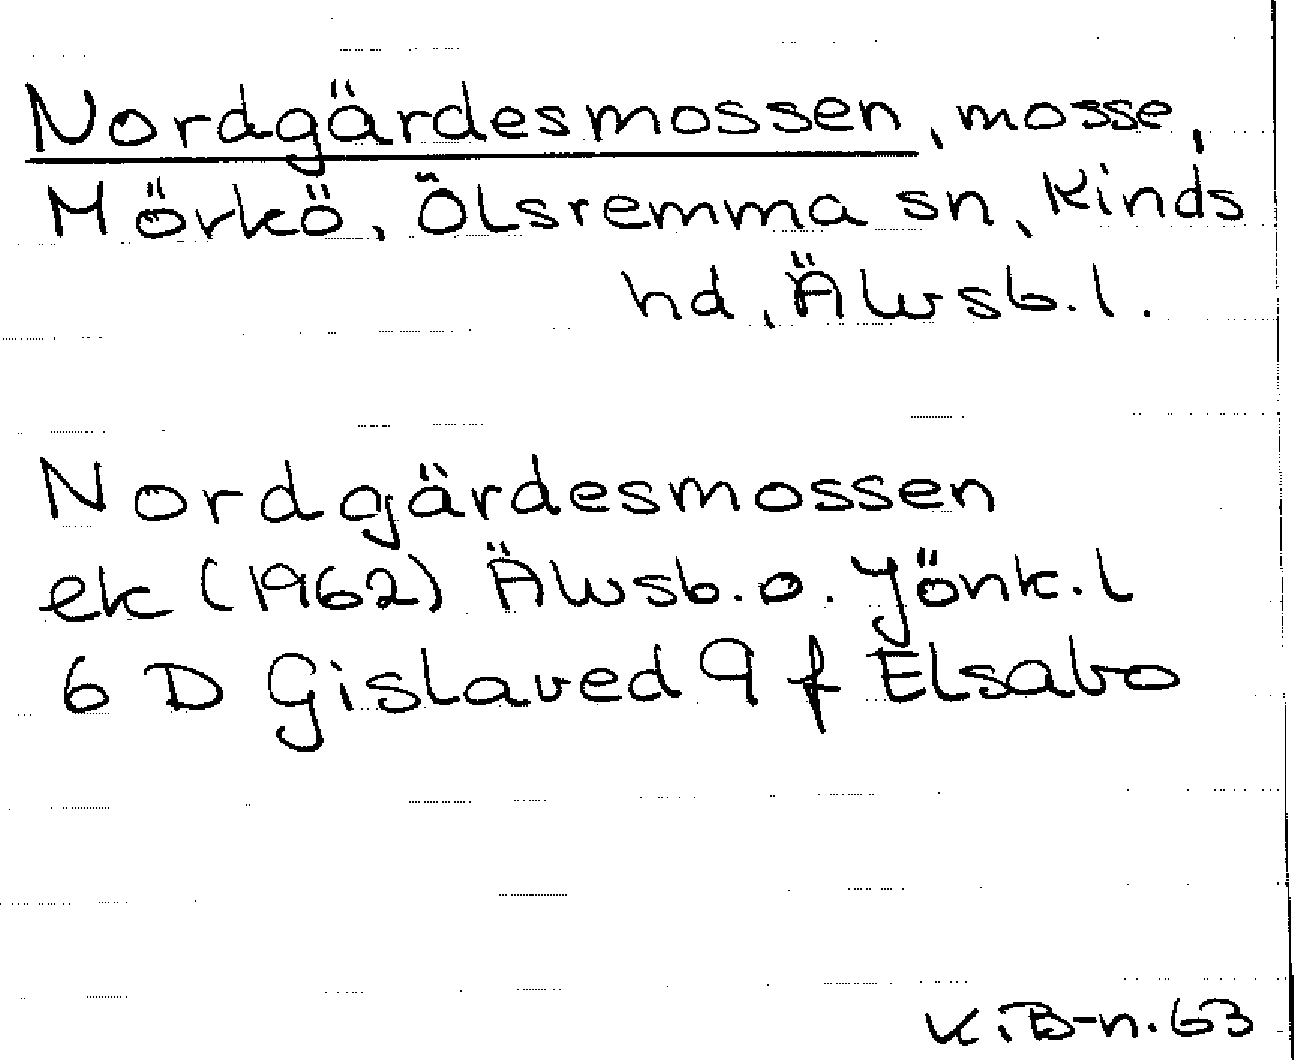 Nordgärdesmossen, mosse,
Mörkö, Ölsremma sn, Kinds
hd, Älvsb. l.
Nordgärdesmossen
ek (1962) Älvsb. o. Jönk. l
6 D Gislaved 9 f Elsabo
K.B-n. 63